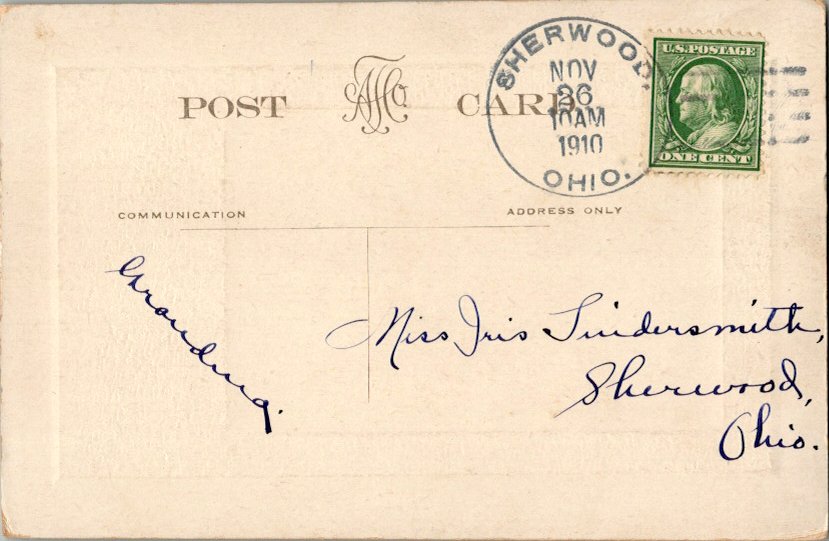 POST CARD
SHERWOOD,
NOV
26
10AM
1910
OHIO.
U.S. POSTAGE
ONE CENT
COMMUNICATION
ADDRESS ONLY
Grandma.
Miss Iris Lindersmith,
Sherwood,
Ohio.